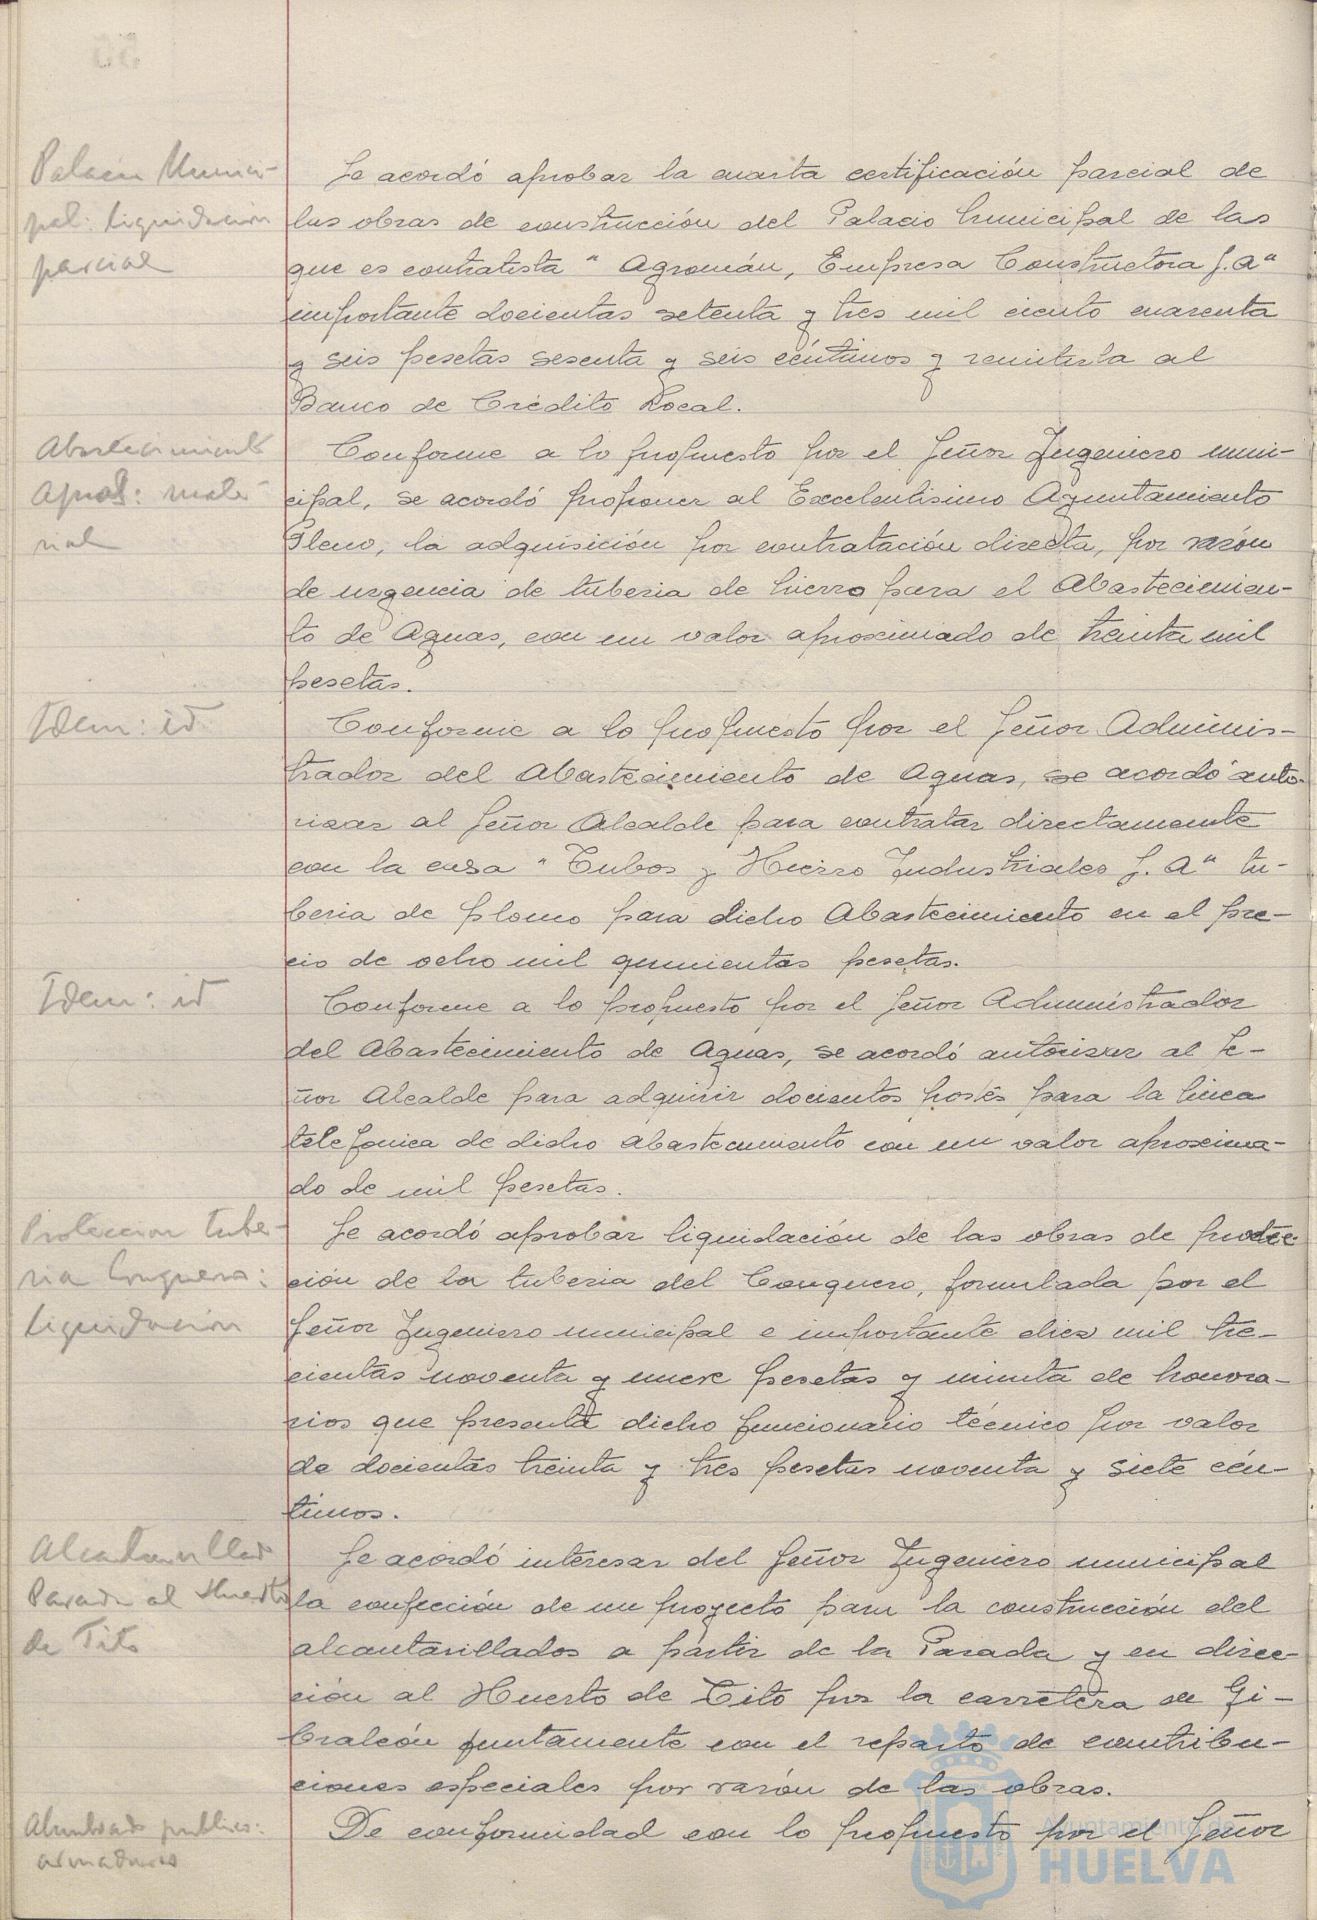 Palacio Munici-
pal: liquidación
parcial
Se acordó aprobar la cuarta certificación parcial de
las obras de construcción del Palacio Municipal de las
que es contratista "Agromán, Empresa Constructora S.A"
importante docientas setenta y tres mil ciento cuarenta
y seis pesetas sesenta y seis céntimos y remitirla al
Banco de Crédito Local.
Abastecimiento
Aguas: mate-
rial
Conforme a lo propuesto por el Señor Ingeniero muni-
cipal, se acordó proponer al Excelentísimo Ayuntamiento
Pleno, la adquisición por contratación directa, por razón
de urgencia de tuberia de hierro para el Abastecimien-
to de Aguas, con un valor aproximado de treinta mil
pesetas.
Idem: id
Conforme a lo propuesto por el Señor Adminis-
trador del Abastecimiento de Aguas, se acordó auto-
rizar al Señor Alcalde para contratar directamente
con la casa "Tubos y Hierro Industriales S.A" tu-
beria de plomo para dicho Abastecimiento en el pre-
cio de ocho mil quinientas pesetas.
Idem: id
Conforme a lo propuesto por el Señor Administrador
del Abastecimiento de Aguas, se acordó autorizar al Se-
ñor Alcalde para adquirir docientos postes para la linea
telefonica de dicho abastecimiento con un valor aproxima-
do de mil pesetas.
Proteccion tube-
ria Conquero:
liquidación
Se acordó aprobar liquidación de las obras de protec-
ción de la tuberia del Conquero, formulada por el
Señor Ingeniero municipal e importante diez mil tre-
cientas noventa y nueve pesetas y minuta de honora-
rios que presenta dicho funcionario técnico por valor
de docientas treinta y tres pesetas noventa y siete cén-
timos.
Alcantarillado
Parada al Huerto
de Tito
Se acordó interesar del Señor Ingeniero municipal
la confección de un proyecto para la construcción del
alcantarillados a partir de la Parada y en direc-
ción al Huerto de Tito por la carretera de Gi-
braleón juntamente con el reparto de contribu-
ciones especiales por razón de las obras.
Alumbrado publico:
armaduras
De conformidad con lo propuesto por el Señor
Ayuntamiento de
HUELVA